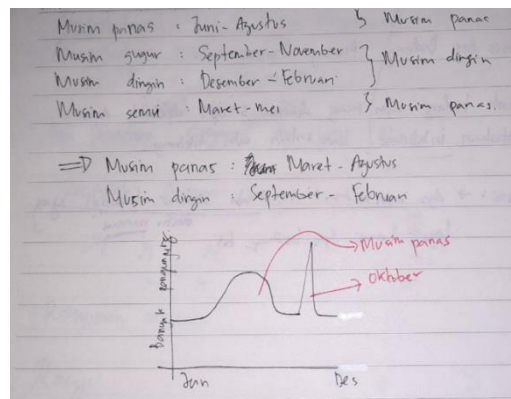 Musim panas : Juni-Agustus } Musim panas
Musim gugur : September-November } Musim dingin
Musim dingin : Desember - Februari
Musim semi : Maret-mei } Musim panas.
=> Musim panas : Maret - Agustus
Musim dingin : September - Februari
Musim panas
Oktober
Banyak
Jan Des